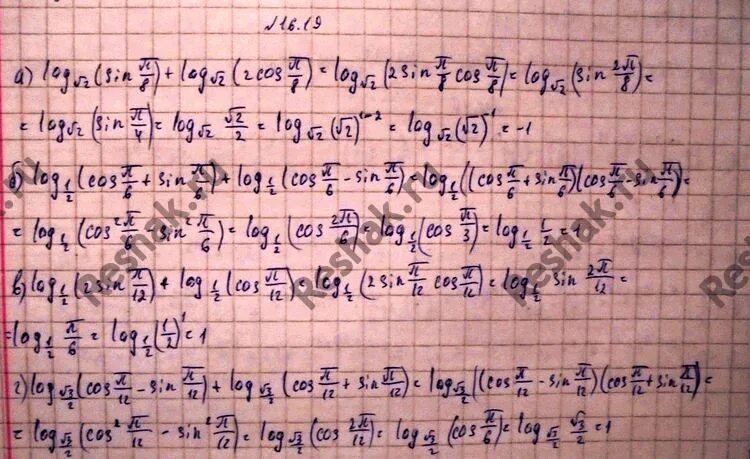 №16.19
а) log_√2 (sin π/8) + log_√2 (2cos π/8) = log_√2 (2sin π/8 cos π/8) = log_√2 (sin 2π/8) =
= log_√2 (sin π/4) = log_√2 √2/2 = log_√2 (√2)^(1-2) = log_√2 (√2)^(-1) = -1
б) log_1/2 (cos π/6 + sin π/6) + log_1/2 (cos π/6 - sin π/6) = log_1/2 ((cos π/6 + sin π/6)(cos π/6 - sin π/6)) =
= log_1/2 (cos² π/6 - sin² π/6) = log_1/2 (cos 2π/6) = log_1/2 (cos π/3) = log_1/2 1/2 = 1
в) log_1/2 (2sin π/12) + log_1/2 (cos π/12) = log_1/2 (2sin π/12 cos π/12) = log_1/2 sin 2π/12 =
= log_1/2 π/6 = log_1/2 (1/2)^1 = 1
г) log_√3/2 (cos π/12 - sin π/12) + log_√3/2 (cos π/12 + sin π/12) = log_√3/2 ((cos π/12 - sin π/12)(cos π/12 + sin π/12)) =
= log_√3/2 (cos² π/12 - sin² π/12) = log_√3/2 (cos 2π/12) = log_√3/2 (cos π/6) = log_√3/2 √3/2 = 1
Reshak.ru
Reshak.ru
Reshak.ru